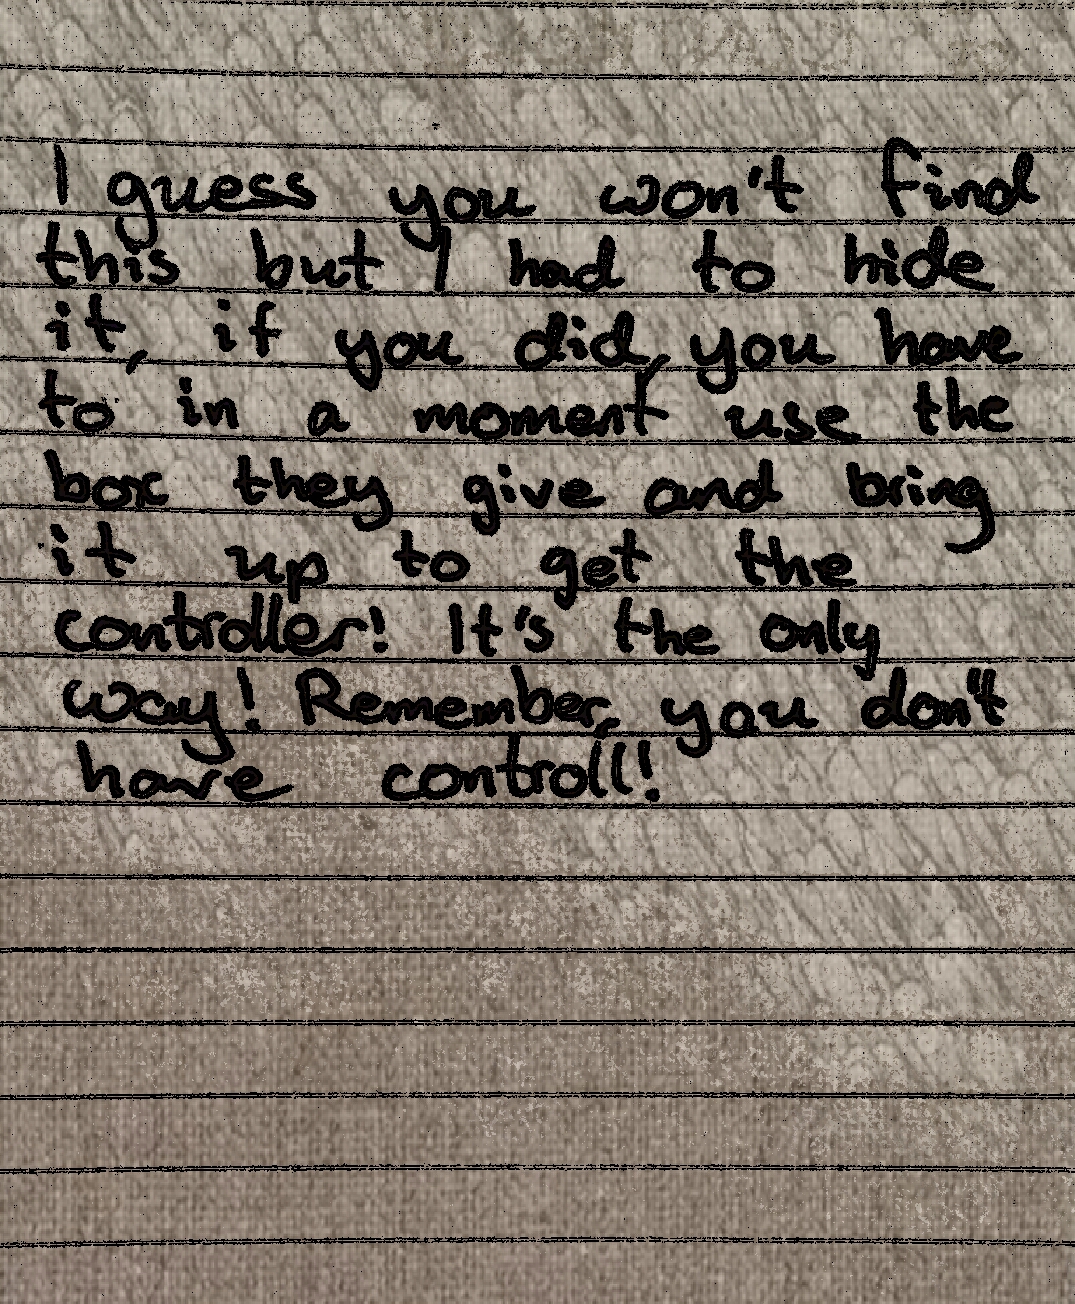 I guess you won't find
this but I had to hide
it, if you did, you have
to in a moment use the
box they give and bring
it up to get the
controller! It's the only
way! Remember, you don't
have controll!